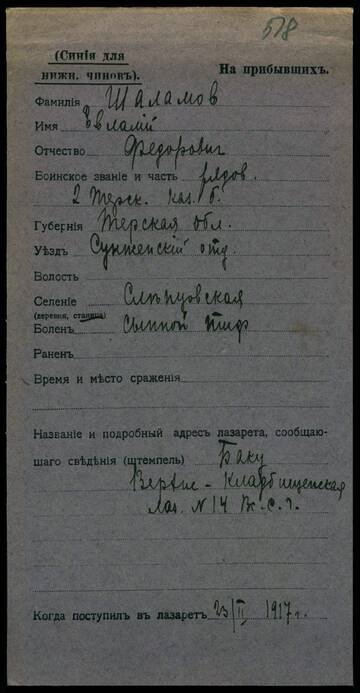 578
(Синія для
нижн. чиновъ).
На прибывшихъ.
Фамилія Шаламов
Имя Евлампій
Отчество Федорович
Воинское званіе и часть рядов.
2 Терск. каз. б.
Губернія Терская обл.
Уѣздъ Сунженскій отд.
Волость
Селеніе Слѣпцовская
(деревня, станица)
Боленъ сыпной тиф
Раненъ
Время и мѣсто сраженія
Названіе и подробный адресъ лазарета, сообщаю-
щаго свѣдѣнія (штемпель) Баку
Верхне-Кладбищенская
Лаз. N 14 В. С. Г.
Когда поступилъ въ лазаретъ 23/II 1917 г.